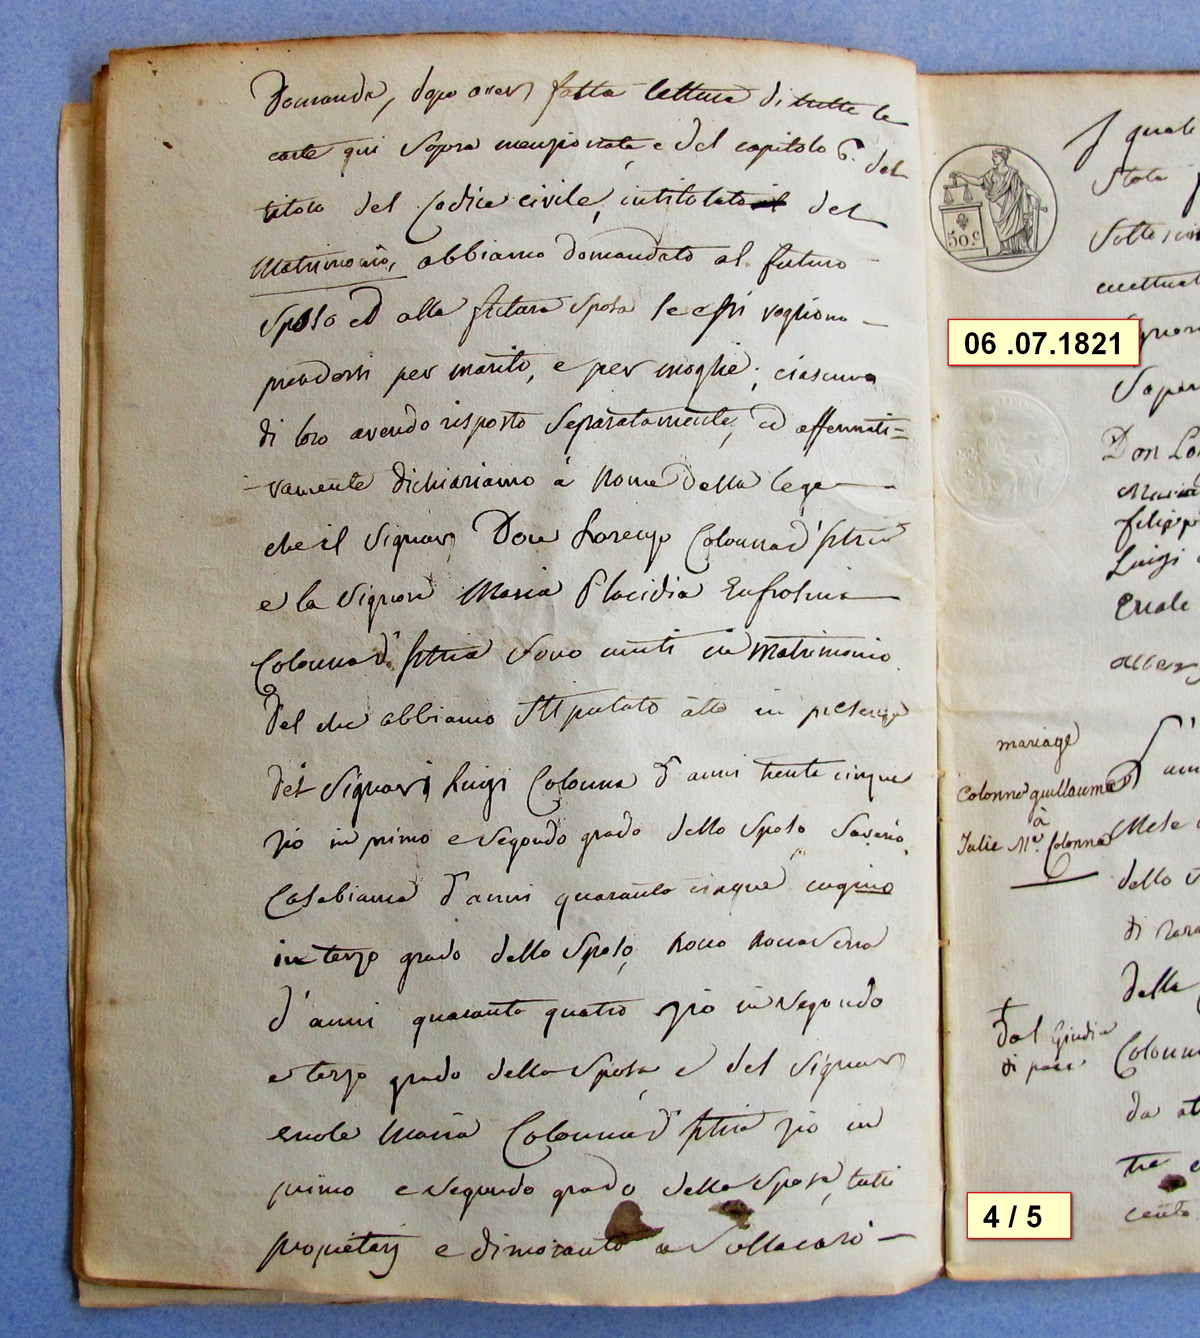 Domanda, dopo aver fatta lettura di tutte le
carte qui Sopra menzionate, e del capitolo 6. del
titolo del Codice civile, intitolato del
Matrimonio, abbiamo domandato al futuro
Sposo ed alla futura Sposa se essi vogliono
prendersi per marito, e per moglie; ciascuno
di loro avendo risposto Separatamente, ed affermati=
vamente dichiariamo à Nome della lege
che il Signor Don Lorenzo Colonna d'Istria
e la Signora Maria Placidia Eufrosina
Colonna d'Istria Sono uniti in Matrimonio.
Del che abbiamo Stipulato atto in presenza
del Signori Luigi Colonna d'anni trenta cinque
zio in primo e Segondo grado dello Sposo Saverio
Casabianca d'anni quaranta cinque cugino
in terzo grado dello Sposo, Rocco Roccaserra
d'anni quaranta quatro zio in Segondo
e terzo grado della Sposa, e del Signor
Maria Colonna d'Istria zio in
primo e Segondo grado della Sposa, tutti
proprietarj e dimoranti a Sollacarò
50.c
06 .07.1821
mariage
Colonna guillaume
à
Julie Me. Colonna
dal Giudice
di pace
4 / 5
quale
Stata
Don
Maria
Luigi
dello
di
della
Colonna
da
tre
cento